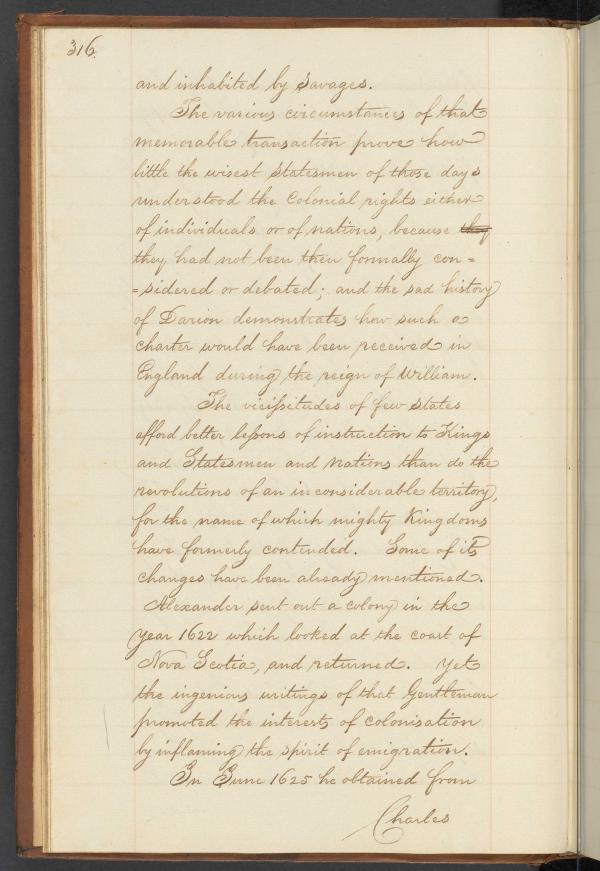 316.
and inhabited by Savages.
The various circumstances of that
memorable transaction prove how
little the wisest Statesmen of those days
understood the Colonial rights either
of individuals or of nations, because they
they had not been then formally con=
=sidered or debated; and the sad history
of Darion demonstrates how such a
charter would have been received in
England during the reign of William.
The vicissitudes of few States
afford better lessons of instruction to Kings
and Statesmen and Nations than do the
revolutions of an inconsiderable territory,
for the name of which mighty Kingdoms
have formerly contended. Some of its
changes have been already mentioned.
Alexander sent out a colony in the
year 1622 which looked at the coast of
Nova Scotia, and returned. Yet
the ingenious writings of that Gentleman
promoted the interests of colonisation
by inflaming the spirit of emigration.
In June 1625 he obtained from
Charles